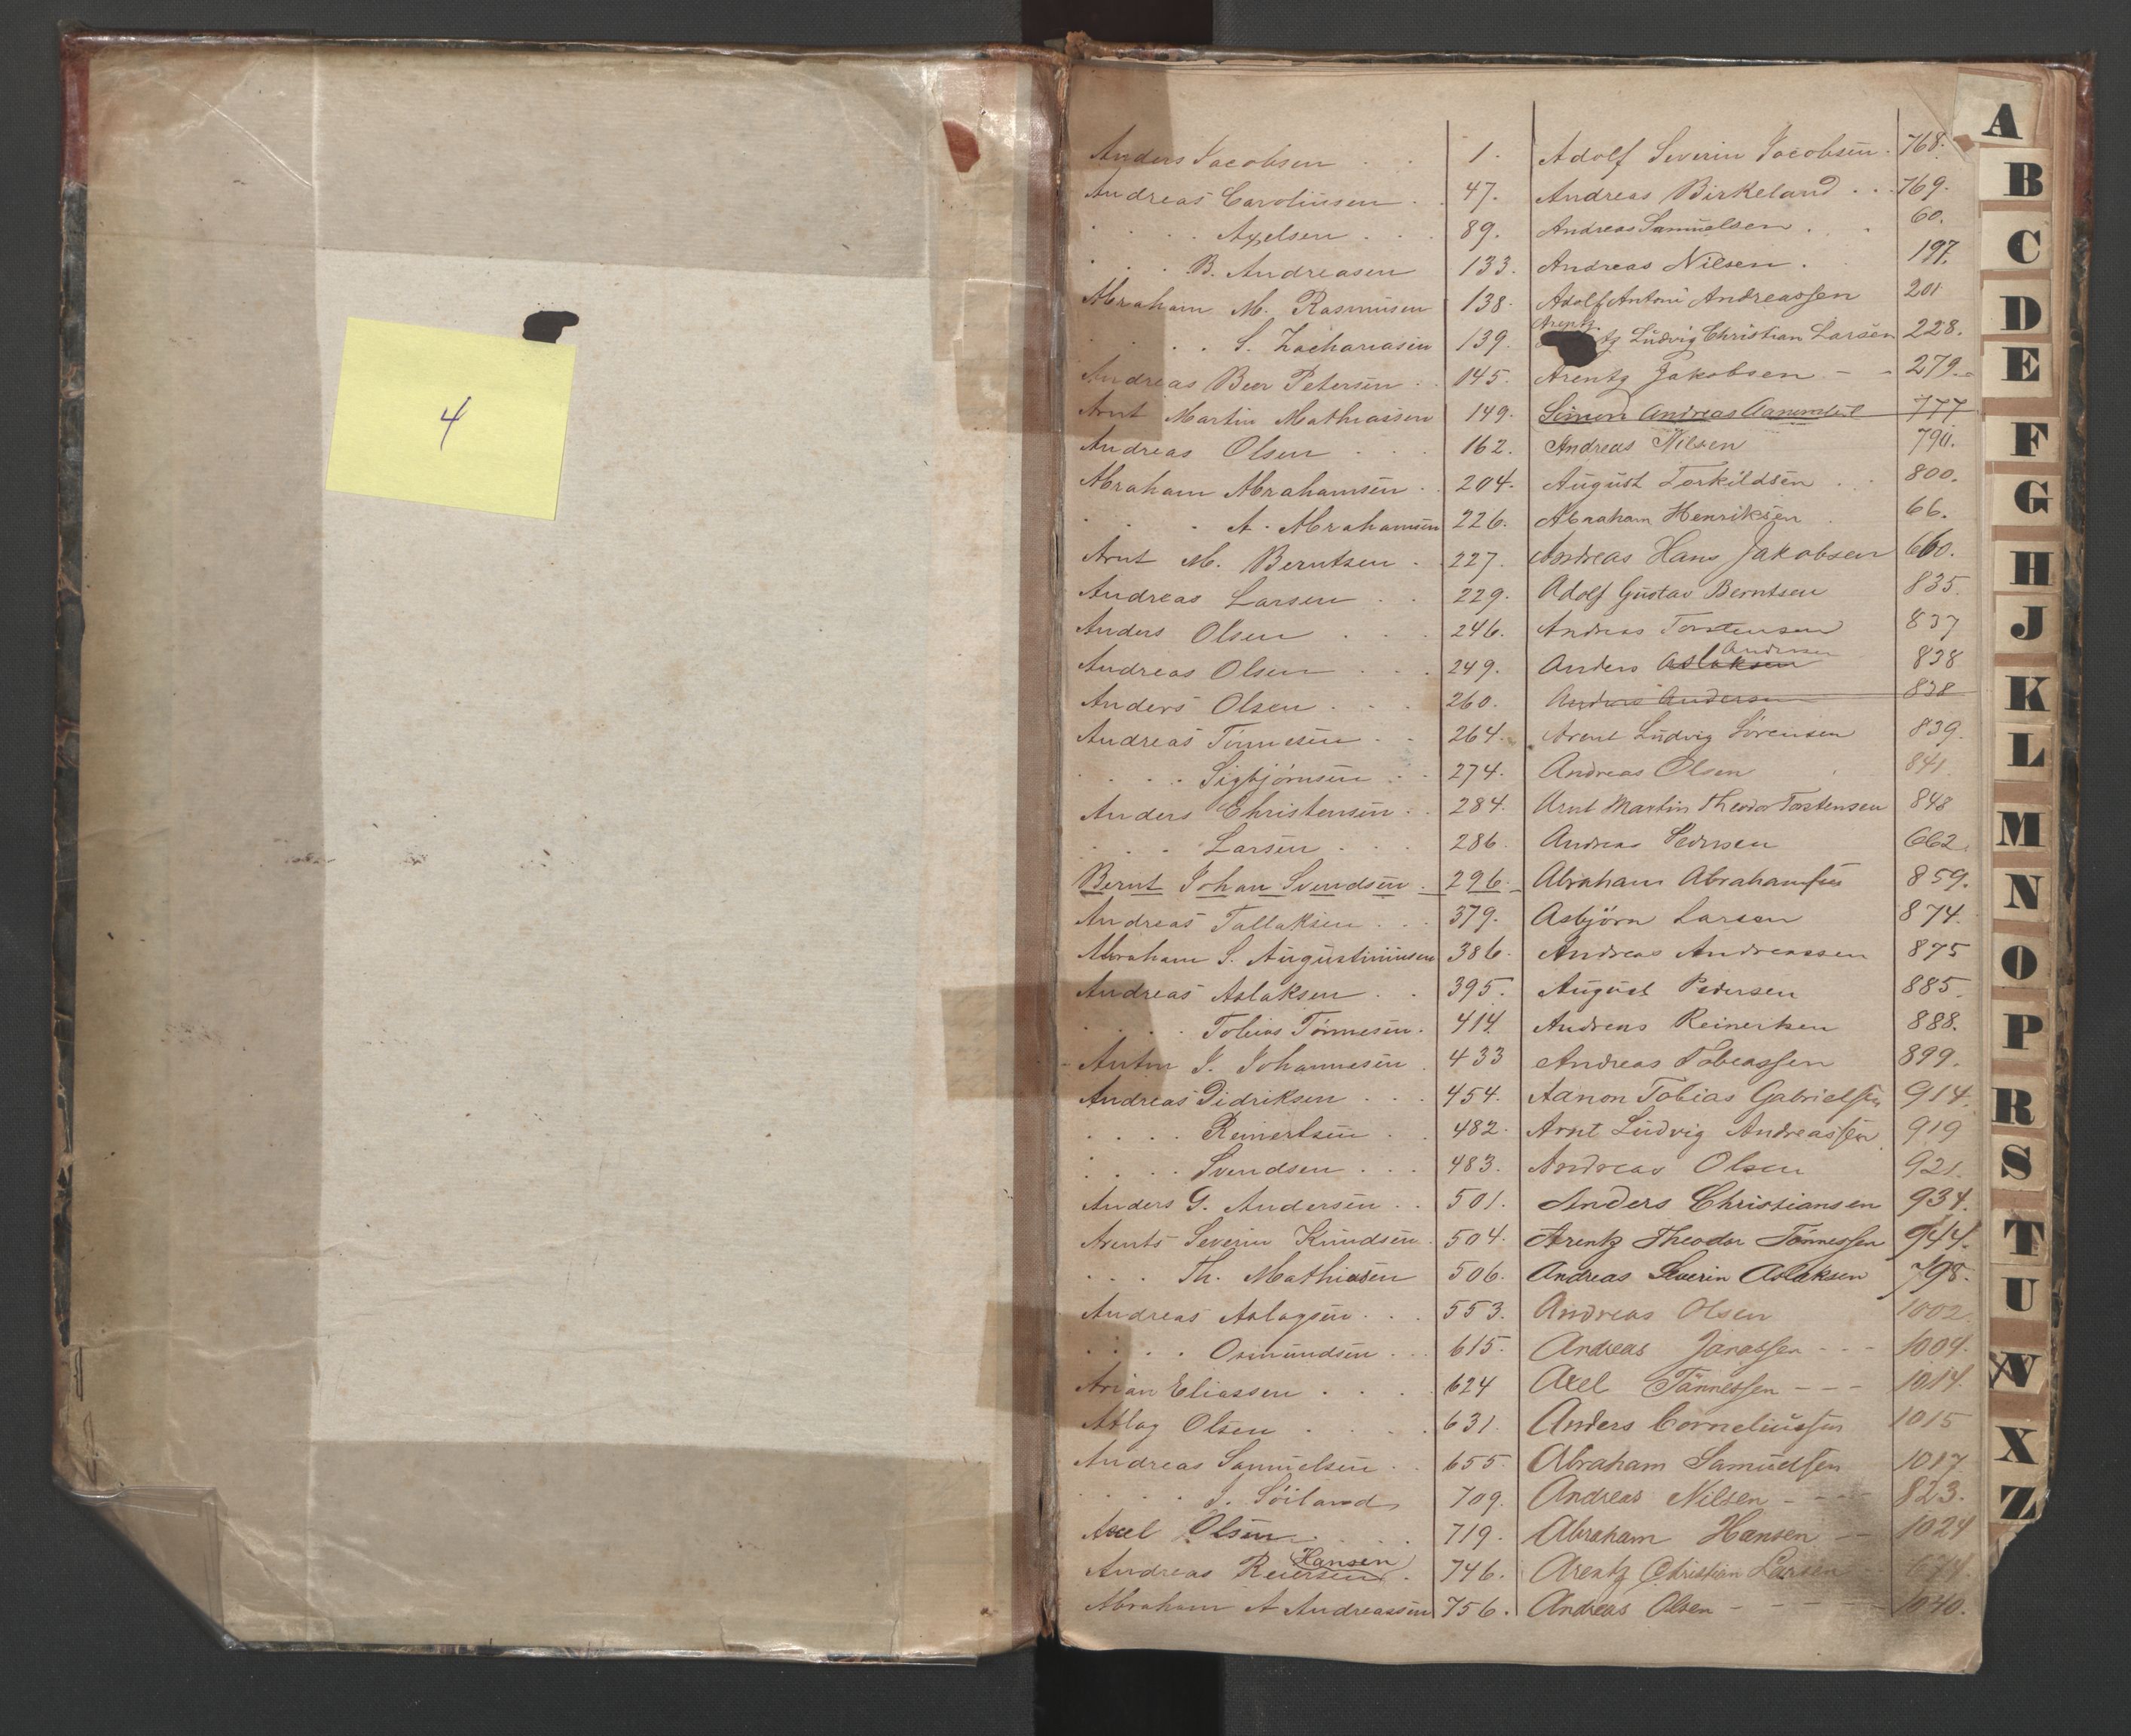 4
Anders Jacobsen . . 1.
Andreas Carolinsen . 47.
. . . . Axelsen . . . 89.
. . . B. Andreasen 133.
Abraham M. Rasmusen 138.
. . . . S. Zachariasen 139.
Andreas Beer Petersen . . 145.
Arnt Martin Mathiassen 149.
Andreas Olsen . . . 162.
Abraham Abrahamsen . . 204.
. . . A. Abrahamsen 226.
Arnt M. Berntsen . 227.
Andreas Larsen . . 229.
Anders Olsen . . . 246.
Andreas Olsen . . . 249.
Anders Olsen . . . 260.
Andreas Tönnesen . . 264.
. . . . Sigbjörnsen . . 274.
Anders Christensen . . 284.
. . . Larsen . . . 286.
Bernt Johan Svendsen . 296.
Andreas Tallaksen . . . 379.
Abraham S. Augustinusen 386.
Andreas Aslaksen . . 395.
. . . . Tobias Tönnesen . 414.
Anton J. Johannesen . 433
Andreas Didriksen . . . 454.
. . . . Reinertsen . . 482.
. . . . Svendsen . . . 483.
Anders G. Andersen . . 501.
Arents Severin Knudsen . 504.
. . . Th. Mathiasen 506.
Andreas Aslagsen . . . 553.
. . . . Osmundsen . . . 615.
Arian Eliassen . . . . 624
Atlag Olsen . . . . 631.
Andreas Samuelsen . . 655.
. . . . J. Söiland 709.
Axel Olsen . . . 719.
Hansen
Andreas Reiersen . 746.
Abraham A Andreassen 756.
Adolf Severin Jacobsen . 768.
Andreas Birkeland . . . 769.
Andreas Samuelsen . . 60.
Andreas Nilsen . . 197.
Adolf Antoni Andreassen 201
Arentz
tz Ludvig Christian Larsen 228.
Arentz Jakobsen - - 279.
Simon Andreas 777
Andreas Nilsen 790.
August Torkildsen . . 800.
Abraham Henriksen . 66.
Andreas Hans Jakobsen 660.
Adolf Gustav Berntsen 835.
Andreas Torstensen 837
Andersen
Anders Aslaksen 838
Anders Andersen 838
Arent Ludvig Sörensen 839.
Andreas Olsen . 841
Arnt Martin Theodor Torstensen 848
Andreas Pedersen 662.
Abraham Abrahamsen 859.
Asbjörn Larsen 874.
Andreas Andreassen 875
August Pedersen 885.
Andreas Reinertsen 888.
Andreas Tobiassen 899.
Aanon Tobias Gabrielsen 914.
Arnt Ludvig Andreassen 919
Andreas Olsen 921.
Anders Christiansen 934.
Arentz Theodor Tönnessen 944.
Andreas Severin Aslaksen 798.
Andreas Olsen 1002.
Andreas Jonassen - - - 1009.
Axel Tönnessen - - - 1014.
Anders Corneliussen 1015
Abraham Samuelsen 1017
Andreas Nilsen - - - - 823.
Abraham Hansen - - 1024
Arentz Christian Larsen 674.
Andreas Olsen - - - - - 1040.
A
B
C
D
E
F
G
H
J
K
L
M
N
O
P
R
S
T
U
W
X
Z